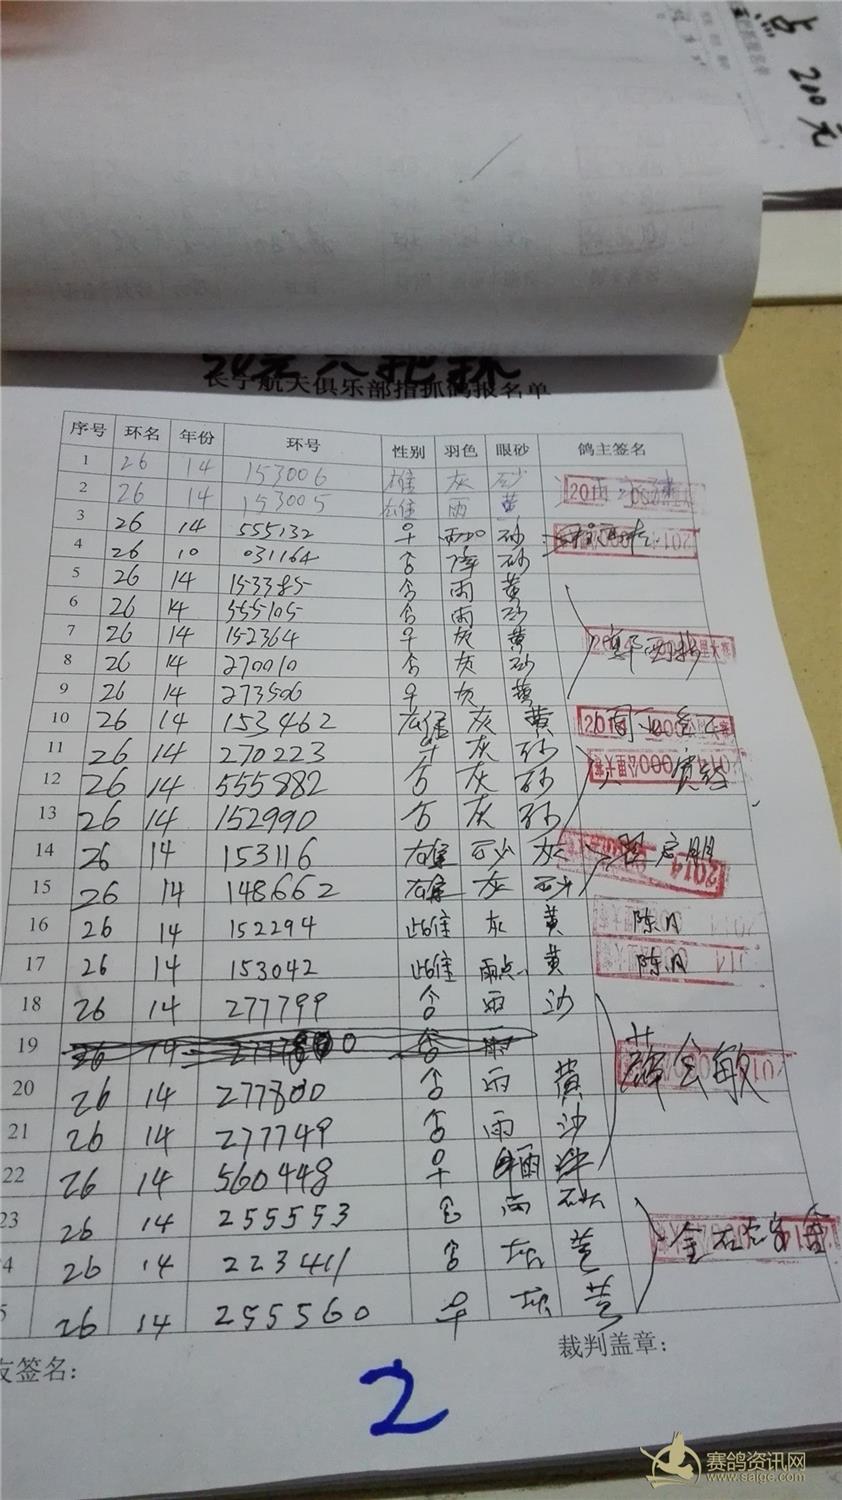 200元
长宁航天俱乐部指抓鸽报名单
序号 环名 年份 环号 性别 羽色 眼砂 鸽主签名
1 26 14 153006 雄 灰 砂
2 26 14 153005 雄 雨 黄
3 26 14 555132 砂
4 26 10 031164 砂
5 26 14 153385 雨 黄
6 26 14 555105 雨 砂
7 26 14 152364 灰 黄
8 26 14 270010 灰 砂
9 26 14 273506 灰 黄
10 26 14 153462 雄 灰 黄
11 26 14 270223 灰 砂
12 26 14 555882 灰 砂
13 26 14 152990 灰 砂
14 26 14 153116 雄 砂 灰
15 26 14 148662 雄 灰 砂
16 26 14 152294 雌 灰 黄 陈月
17 26 14 153042 雌 雨点 黄 陈月
18 26 14 277799 雨 沙
19 26 14
20 26 14 277800 雨 黄
21 26 14 277749 雨 沙
22 26 14 560448 雨
23 26 14 255553 雨 砂
4 26 14 223411 灰 黄
5 26 14 255560 灰 黄
友签名: 裁判盖章:
2
赛鸽资讯网
www.saige.com